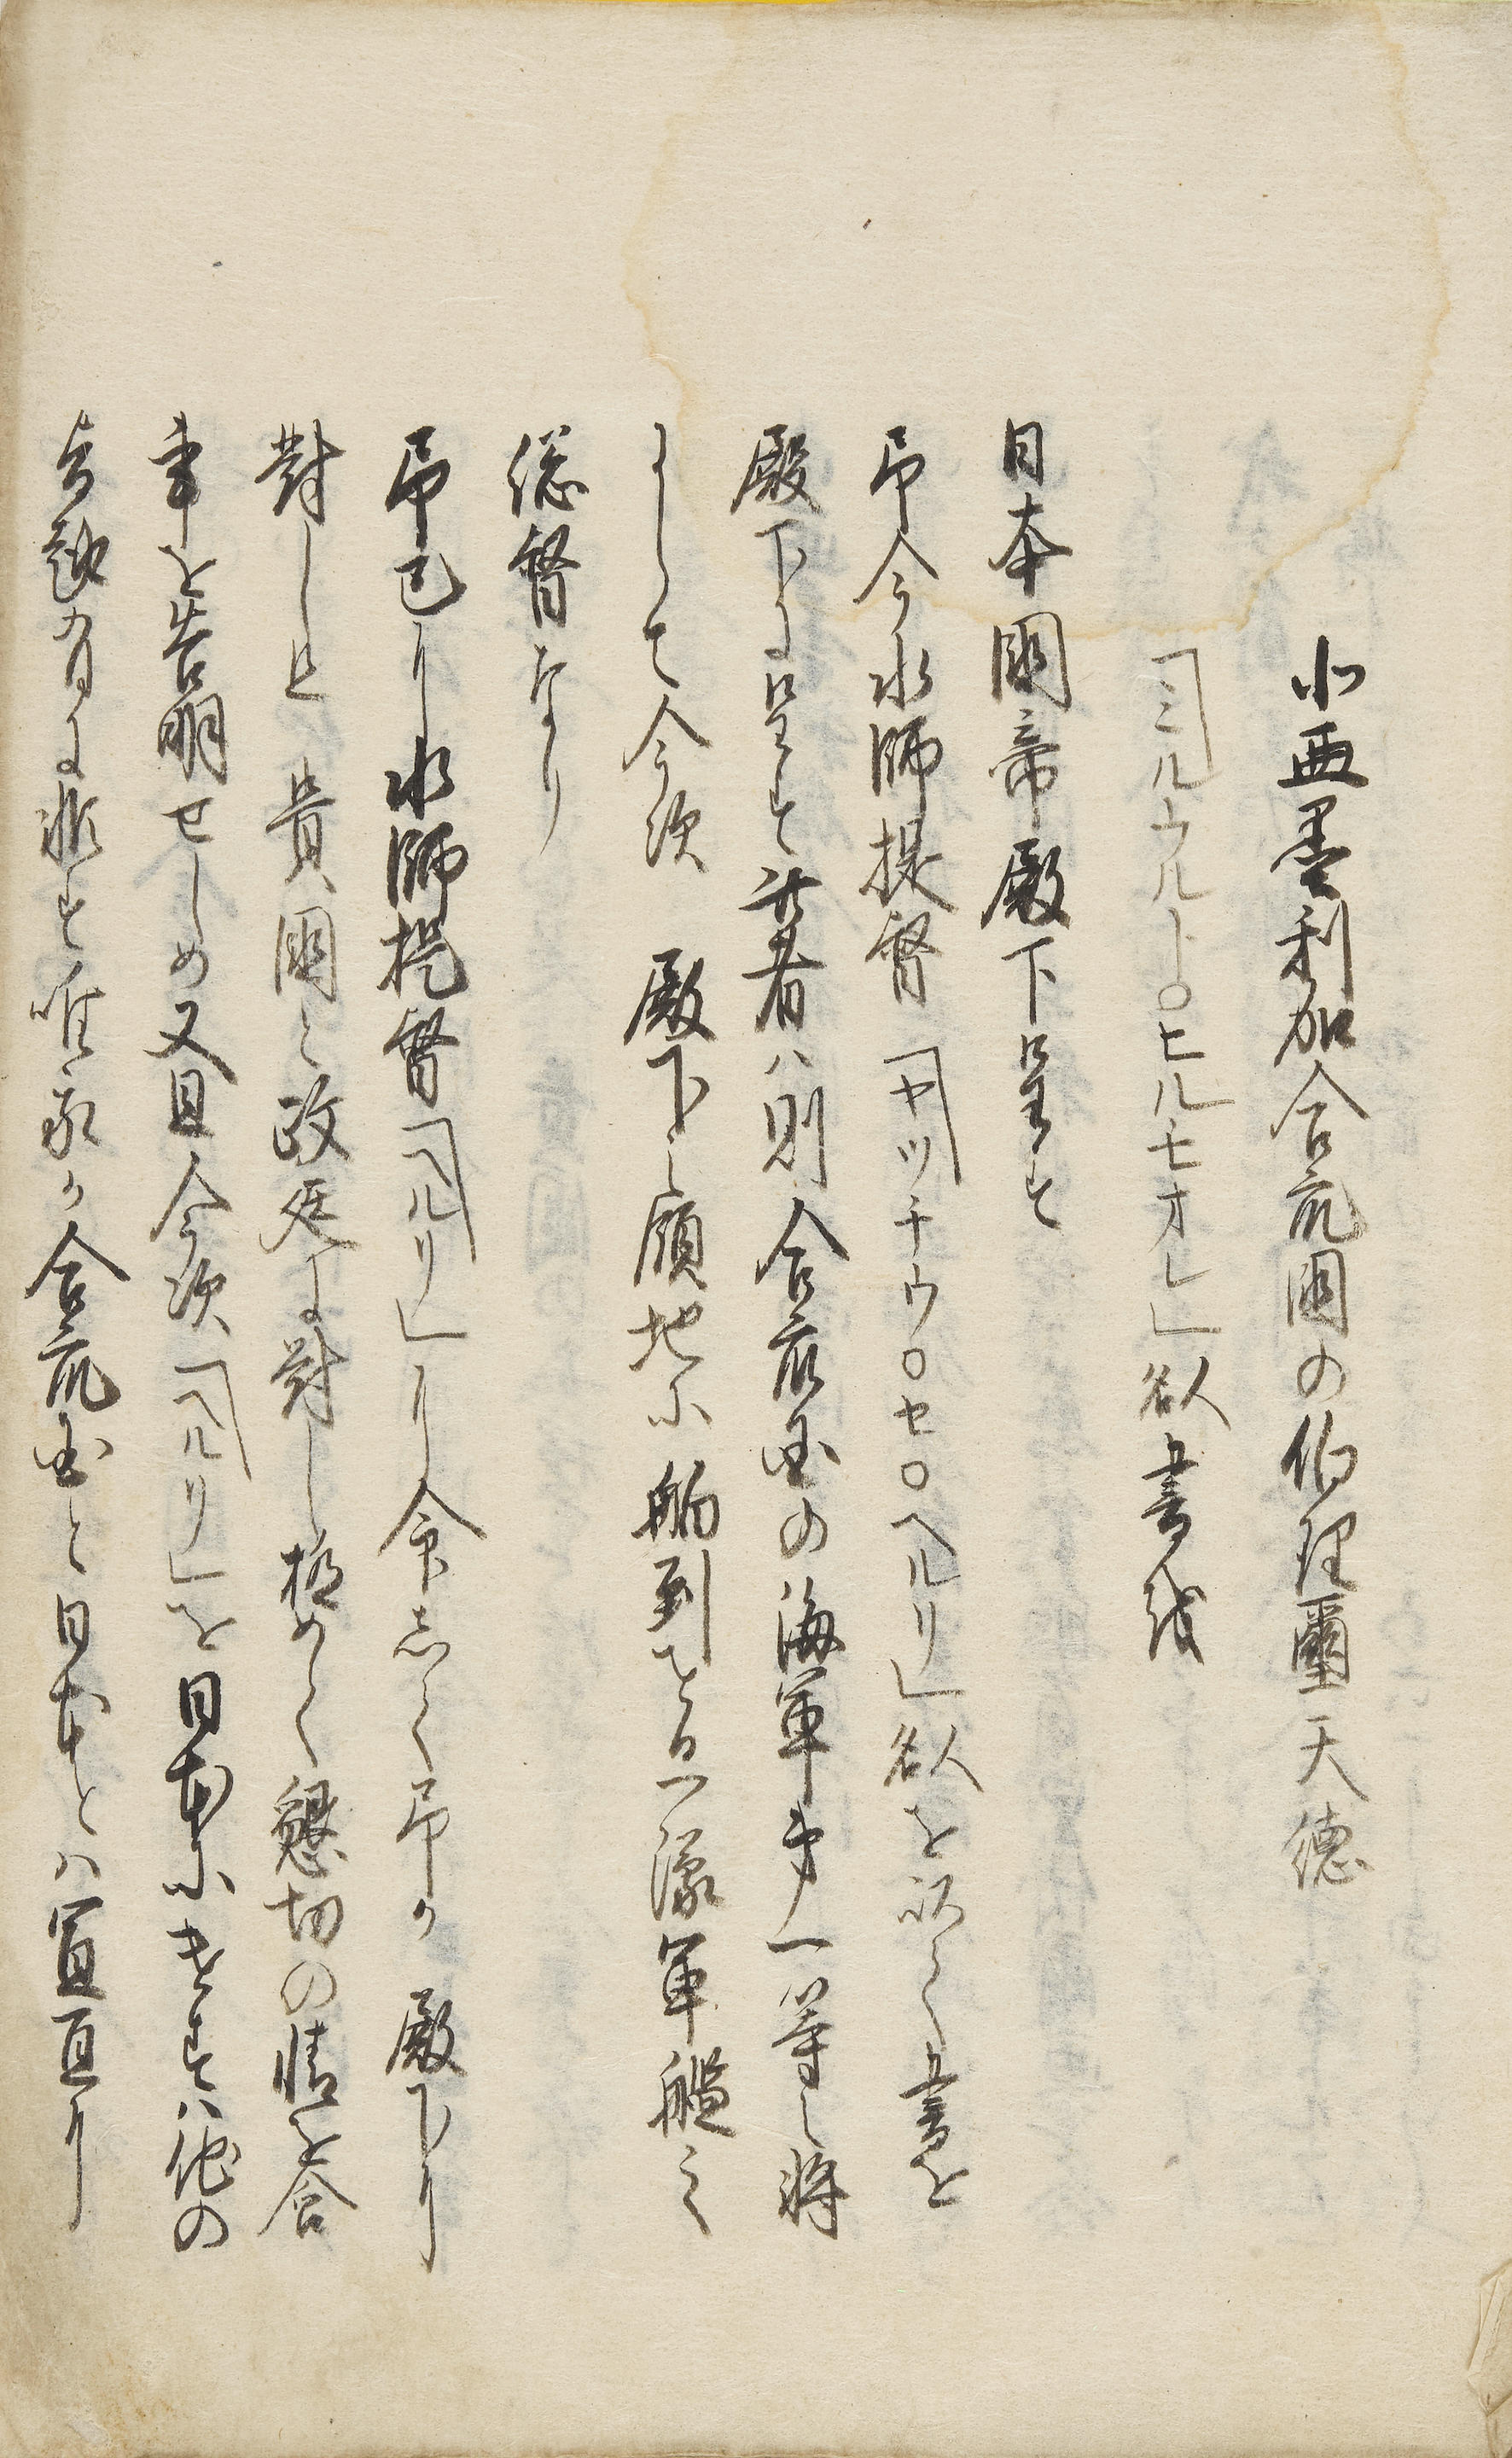 北亜墨利加合衆国の伯理璽天徳
「ミルラルト○ヒルモオレ」欽書
日本国帝殿下呈す
予今水師提督「ヤツチウ○セ○ヘルリ」欽を以て書を
殿下に呈す此者ハ則合衆国の海軍第一等之将
にして今次　殿下之領地に舶到せる一隊軍艦之
総督なり
予已に水師提督「ヘルリ」に命して予か　殿下に
対し且　貴国之政廷に対し極めて懇切の情を含
事を告明せしめ又且今次「ヘルリ」を日本に遣すハ他の
旨趣有に非す唯我か合衆国と日本とハ宜互に